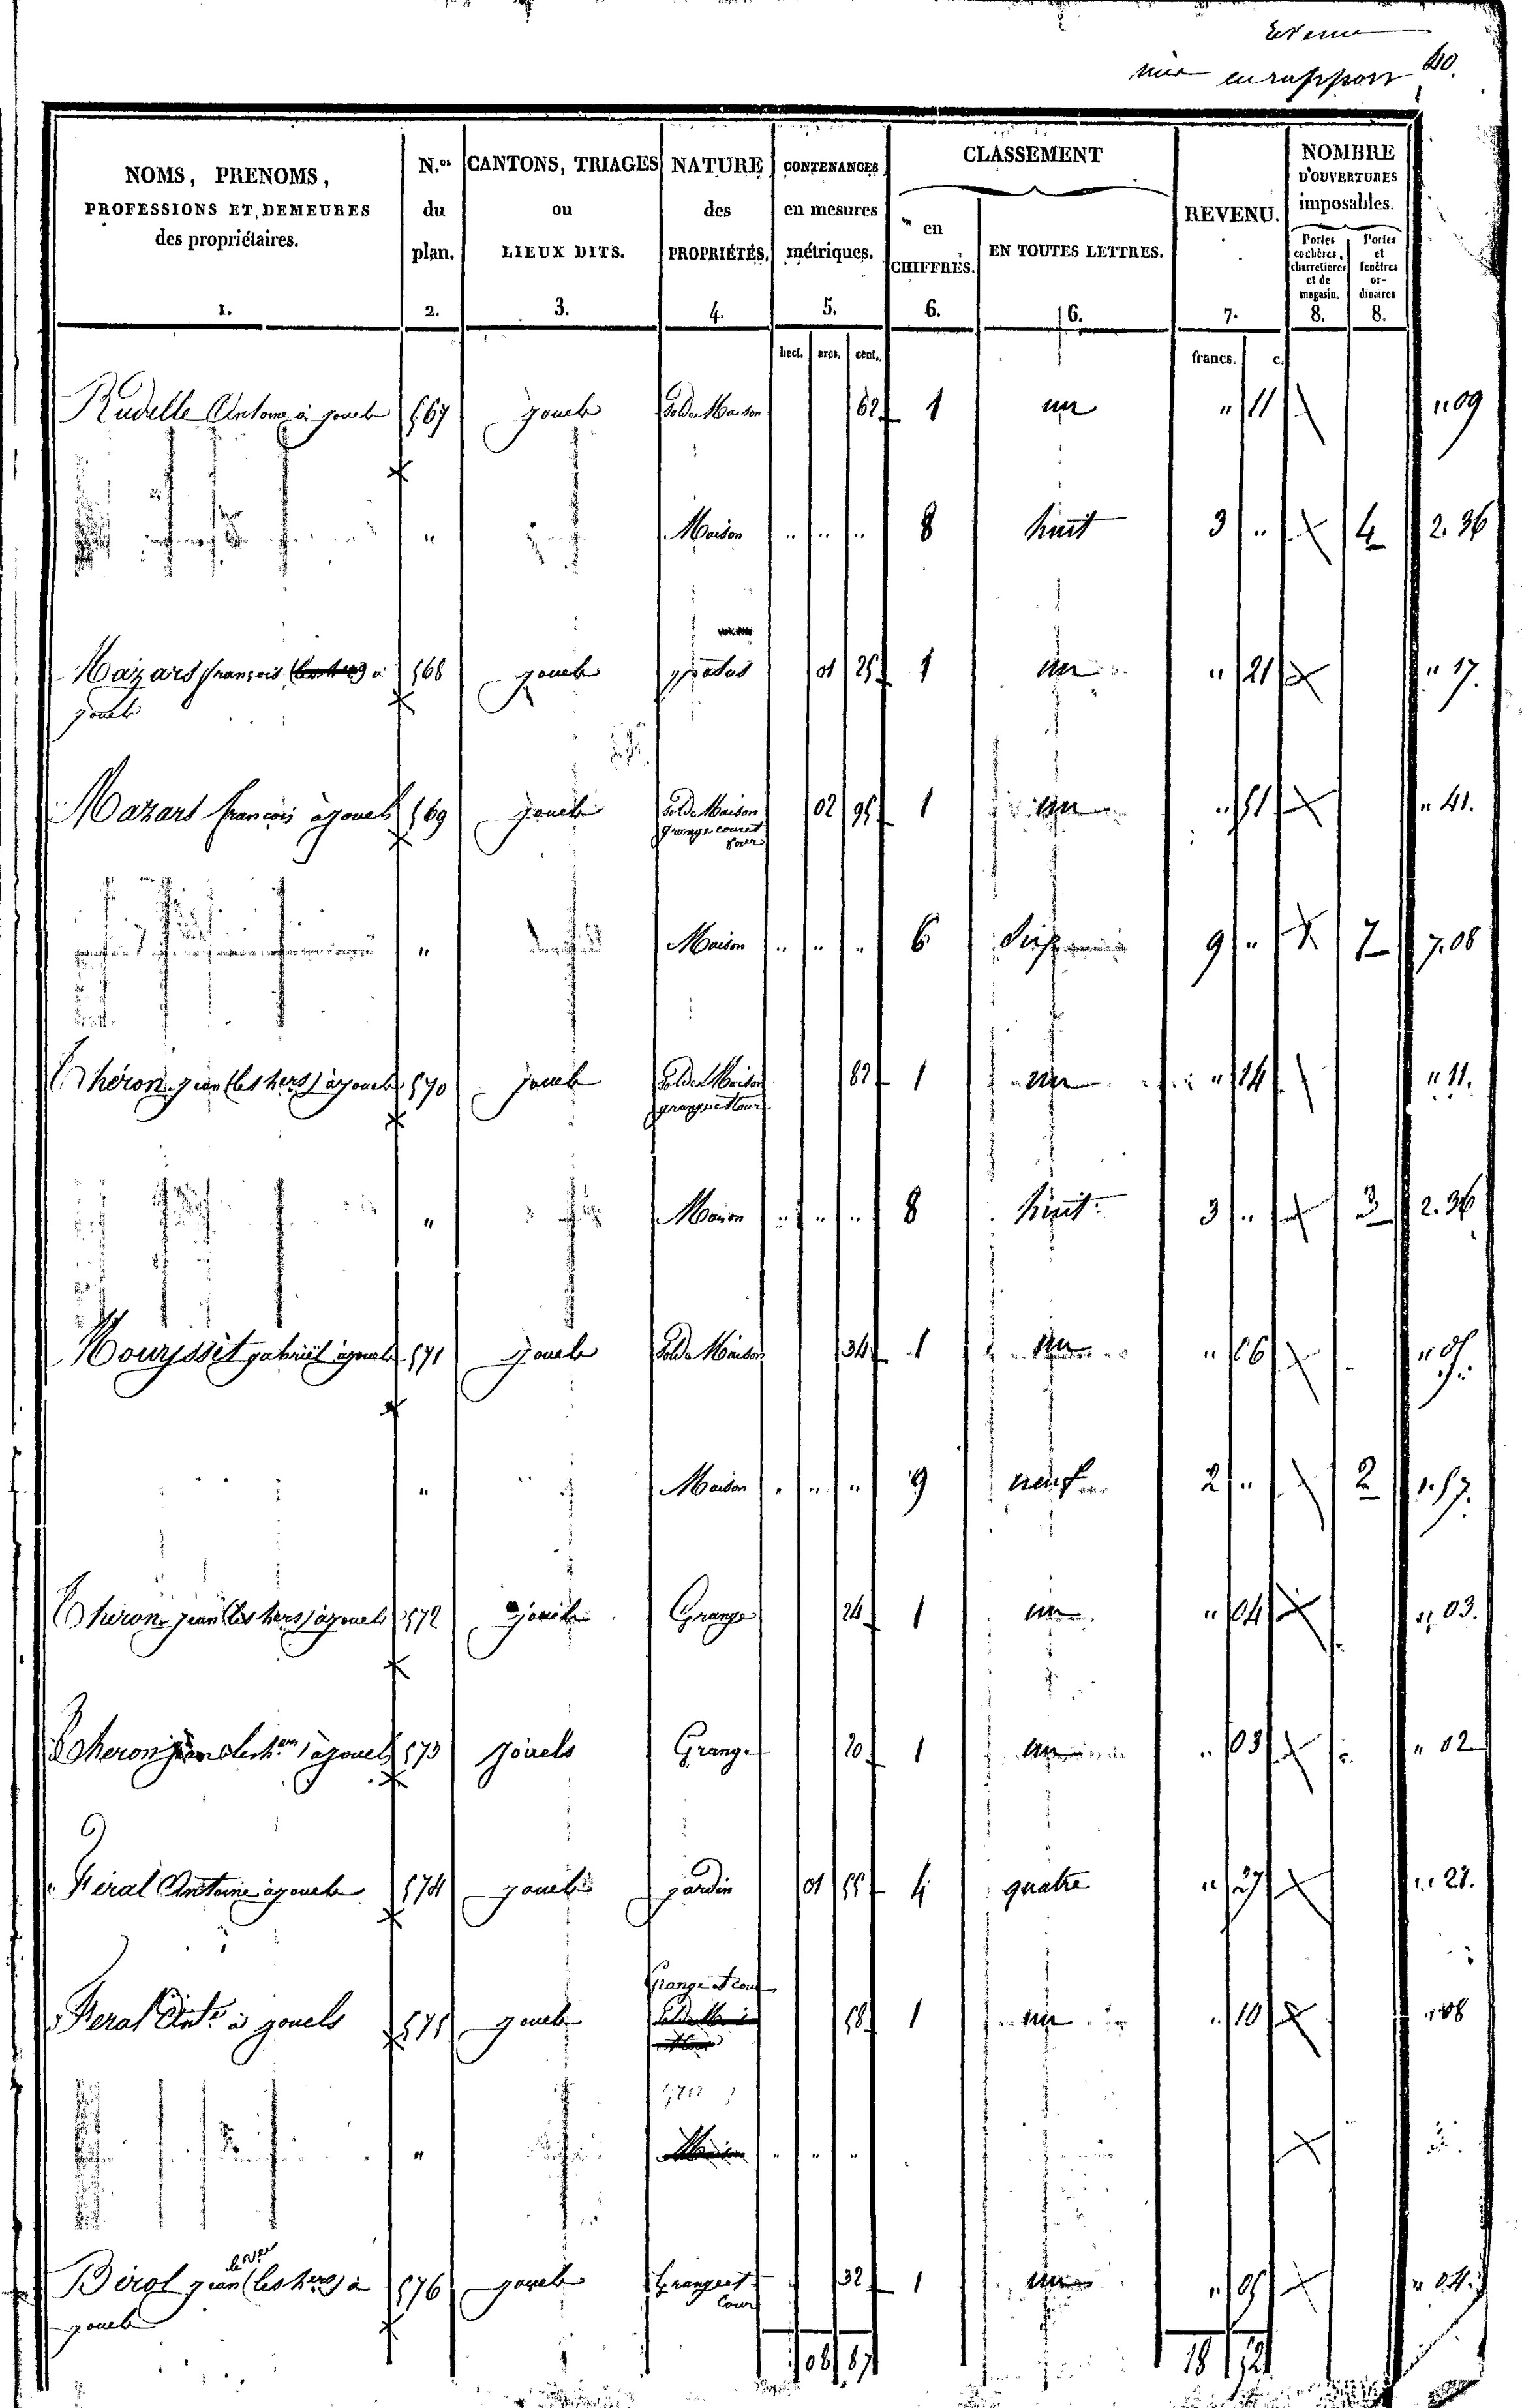 40.
mis en rapport
NOMS, PRENOMS, PROFESSIONS ET DEMEURES des propriétaires. 1.
N.os du plan. 2.
CANTONS, TRIAGES ou LIEUX DITS. 3.
NATURE des PROPRIÉTÉS. 4.
CONTENANCES en mesures métriques. 5.
CLASSEMENT
en CHIFFRES. 6.
EN TOUTES LETTRES. 6.
REVENU. 7.
NOMBRE D'OUVERTURES imposables.
Portes cochères, charretières et de magasin. 8.
Portes et fenêtres ordinaires 8.
hect. ares. cent. francs. c.
Rudelle Antoine à jouels 567 jouels Sol de Maison 62 1 un " 11 " 09
" Maison " " " 8 huit 3 " 4 2. 36
Mazars françois à 568 jouels patus 01 25 1 un " 21 " 17.
jouels
Mazars françois à jouels 569 jouels Sol de Maison 02 95 1 un " 51 " 41.
grange cour et
four
" Maison " " " 6 six 9 " 7 7. 08
Théron jean (les hers) à jouels 570 jouels Sol de Maison 82 1 un " 14 " 11.
grange et cour
" Maison " " " 8 huit 3 " 3 2. 36
Mouysset gabriël à jouels 571 jouels Sol de Maison 34 1 un " 06 "
" Maison " " " 9 neuf 2 " 2 1. 57.
Théron jean (les hers) à jouels 572 jouels Grange 24 1 un " 04 " 03.
Théron jean (les hers) à jouels 573 jouels Grange 20 1 un " 03 " 02
Féral Antoine à jouels 574 jouels jardin 01 55 4 quatre " 27 " 21.
Grange et cour
Feral Ant.e à jouels 575 jouels Sol de Maison 58 1 un " 10 " 08
et Cour
" Maison " " "
Birot jean (les hers) à 576 jouels Grange et 32 1 un " 05 " 04.
jouels Cour
08 87 18 52